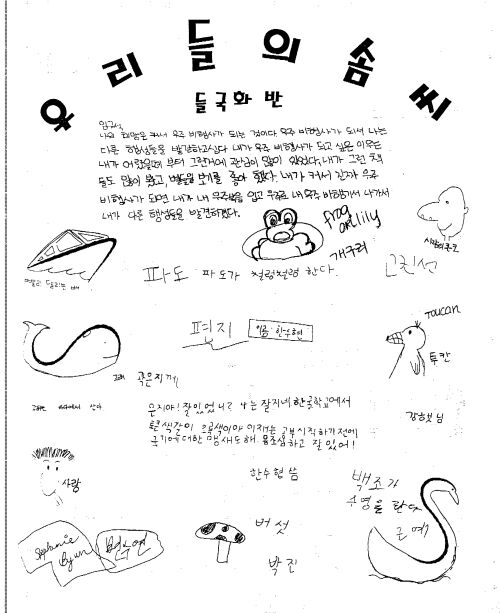 우리들의 솜씨
들국화 반
임규석
나의 희망은 커서 우주 비행사가 되는 것이다. 우주 비행사가 되서 나는
다른 행성들을 발견하고싶다. 내가 우주 비행사가 되고 싶은 이유는
내가 어렸을때 부터 그런거에 관심이 많이 있었다. 내가 그런 책
들도 많이 봤고, 별들을 보기를 좋아 했다. 내가 커서 진짜 우주
비행사가 되면 내가 내 우주복을 입고 우주로 내 우주 비행기서 나가서
내가 다른 행성들을 발견하겠다.
frog
on lily
개구리
사람의 코
파도 파도가 철렁철렁 한다.
고린선
편지
이름: 한수현
Toucan
투칸
고래
곡은지께
고래는 바다에서 산다
은지야! 잘있었니? 나는 잘지네. 한국학교에서
공부시작하기전에
국기에대한 맹세도해. 몸조심하고 잘 있어!
강햇님
사람
한수현 씀
백조가
수영을 한다
은예
버섯
박진
Stephanie
Byun
변수연